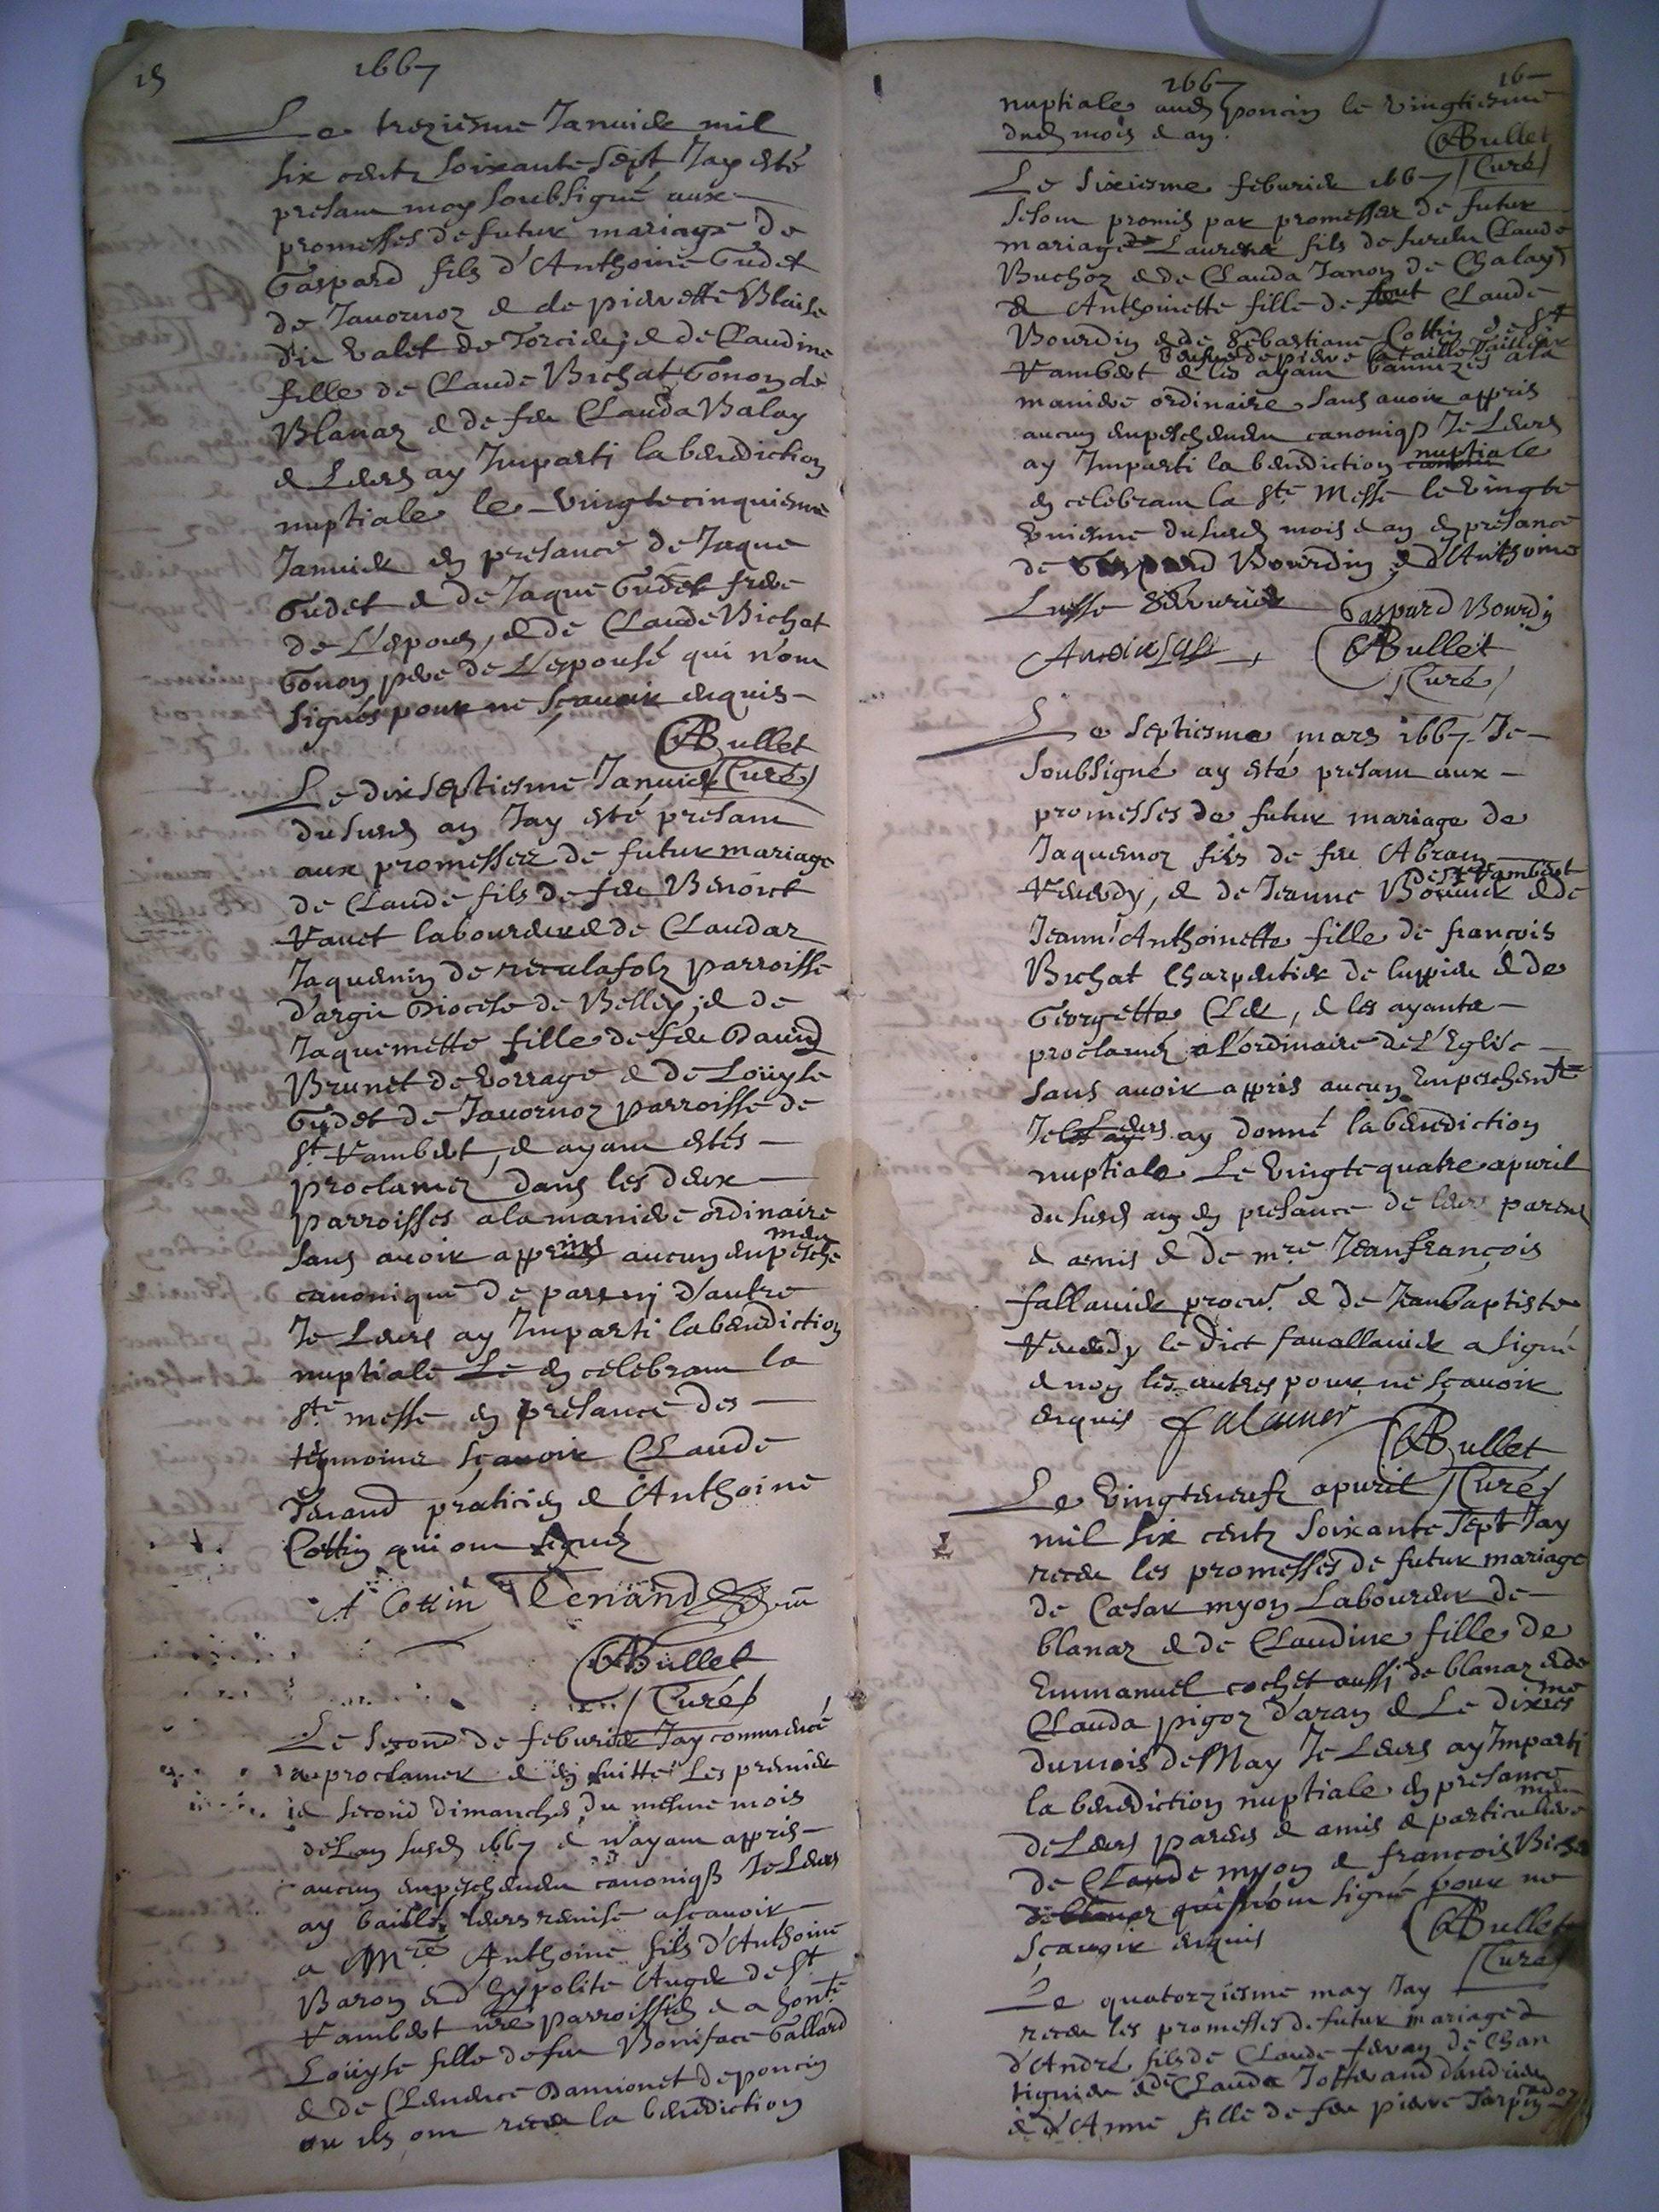 15
1667
Le treziesme Januier mil
six centz soixante sept J'ay esté
presant moy soubsigné aux
promesses de futur mariage de
Gaspard fils d'Anthoine Gudet
de Jauornoz & de pierrette Blaise
de Jauornoz & de Claudine
fille de Claude Bichat Gonon de
Blanaz & de feu Clauda Balay
& Leurs ay Imparti la benediction
nuptiale le vingtecinquiesme
Januier en presance de Jaque
Gudet & de Jaque Gudet frere
de L'espoux, & de Claude Bichat
Gonon pere de L'espouse qui n'ont
signés pour ne sçauoir enquis
CABullet
Curé
Le dixseptiesme Januier
du susd an J'ay esté presant
aux promesses de futur mariage
de Claude fils de feu Benoict
Vauet laboureur & de Claudaz
Jaquemin de reculafolz parroisse
d'argis Diocese de Belley, & de
Jaquemette fille de feu Dauid
Brunet de Vorrage & de Loüyse
Gudet de Jauornoz parroisse de
St Rambert, & ayant estés
proclamez dans les deux
parroisses a la maniere ordinaire
sans auoir appris aucun enpeschemen
canonique de part nj d'autre
Je Leurs ay Imparti la benediction
nuptiale Le en celebrant la
ste messe en presance des
tesmoins sçauoir Claude
Tenand praticien & Anthoine
Cottin qui ont signéz
A Cottin Tenand
CABullet
Curé
Le second de feburier J'ay commencé
a proclamer & en suitte Les premier
& second dimanches du mesme mois
de L'an susd 1667 & n'ayant appris
aucun enpeschement canoniq Je Leurs
ay baillé leurs remise asçauoir
a Mre Anthoine fils d'Anthoine
Baron & d'hypolite Auger de St
Rambert nre parroissien & a honte
Loüyse fille de feu Boniface Gallard
& de Clemence Damionet de poncin
ou ils ont receu la benediction
1667
16
nuptiale aud poncin le vingtiesme
dud mois & an.
CABullet
Curé
Le sixiesme feburier 1667
se sont promis par promesses de futur
mariage Laurent fils de feu Claude
Buchoz & de Clauda Janon de Chaley
& Anthoinette fille de feut Claude
Bourdin & de Sebastiane Cottin de St
vefue de pierre
Rambert & les ayant bannizes a la
maniere ordinaire sans auoir appris
aucun enpeschement canoniq Je Leurs
ay Imparti la benediction nuptiale
en celebrant la ste Messe le vingte
vniesme du susd mois & an en presance
de Gaspard Bourdin & d'Anthoine
Gaspard Bourdin
CABullet
Curé
Le septiesme mars 1667 Je
soubsigné ay esté presant aux
promesses de futur mariage de
Jaquemoz fils de feu Abram
de St Rambert
Venendy, & de Jeanne Bouuier & de
Jeann'Anthoinette fille de françois
Bichat Charpentier de luppieu & de
Georgette Cler, & les ayants
proclamez a L'ordinaire de L'Eglise
sans auoir appris aucun Enpeschemte
Je Leurs ay donné la benediction
nuptiale Le vingtequatre apuril
du susd an en presance de leurs parens
& amis & de mre Jeanfrançois
fallauier procur & de Jeanbaptiste
Venendy le dict fauallauier a signé
& non les autres pour ne sçauoir
enquis
falauier
CABullet
Curé
Le vingteneufz apuril
mil six centz soixante sept J'ay
receu les promesses de futur mariage
de Cæsar myon Laboureur de
blanaz & de Claudine fille de
Emmanuel cochet aussi de blanaz & de
Clauda pigoz d'aran & Le dixiesme
du mois de May Je Leurs ay Imparti
la benediction nuptiale en presance
de Leurs parens & amis & particulieremen
de Claude myon & françois Bichat
de blanaz qui n'ont signé pour ne
sçauoir enquis
CABullet
Curé
Le quatorziesme may J'ay
receu les promesses de futur mariage d
d'André fils de Claude feuan de Chan
tignieu & de Clauda Jotterand
& d'Anne fille de feu pierre